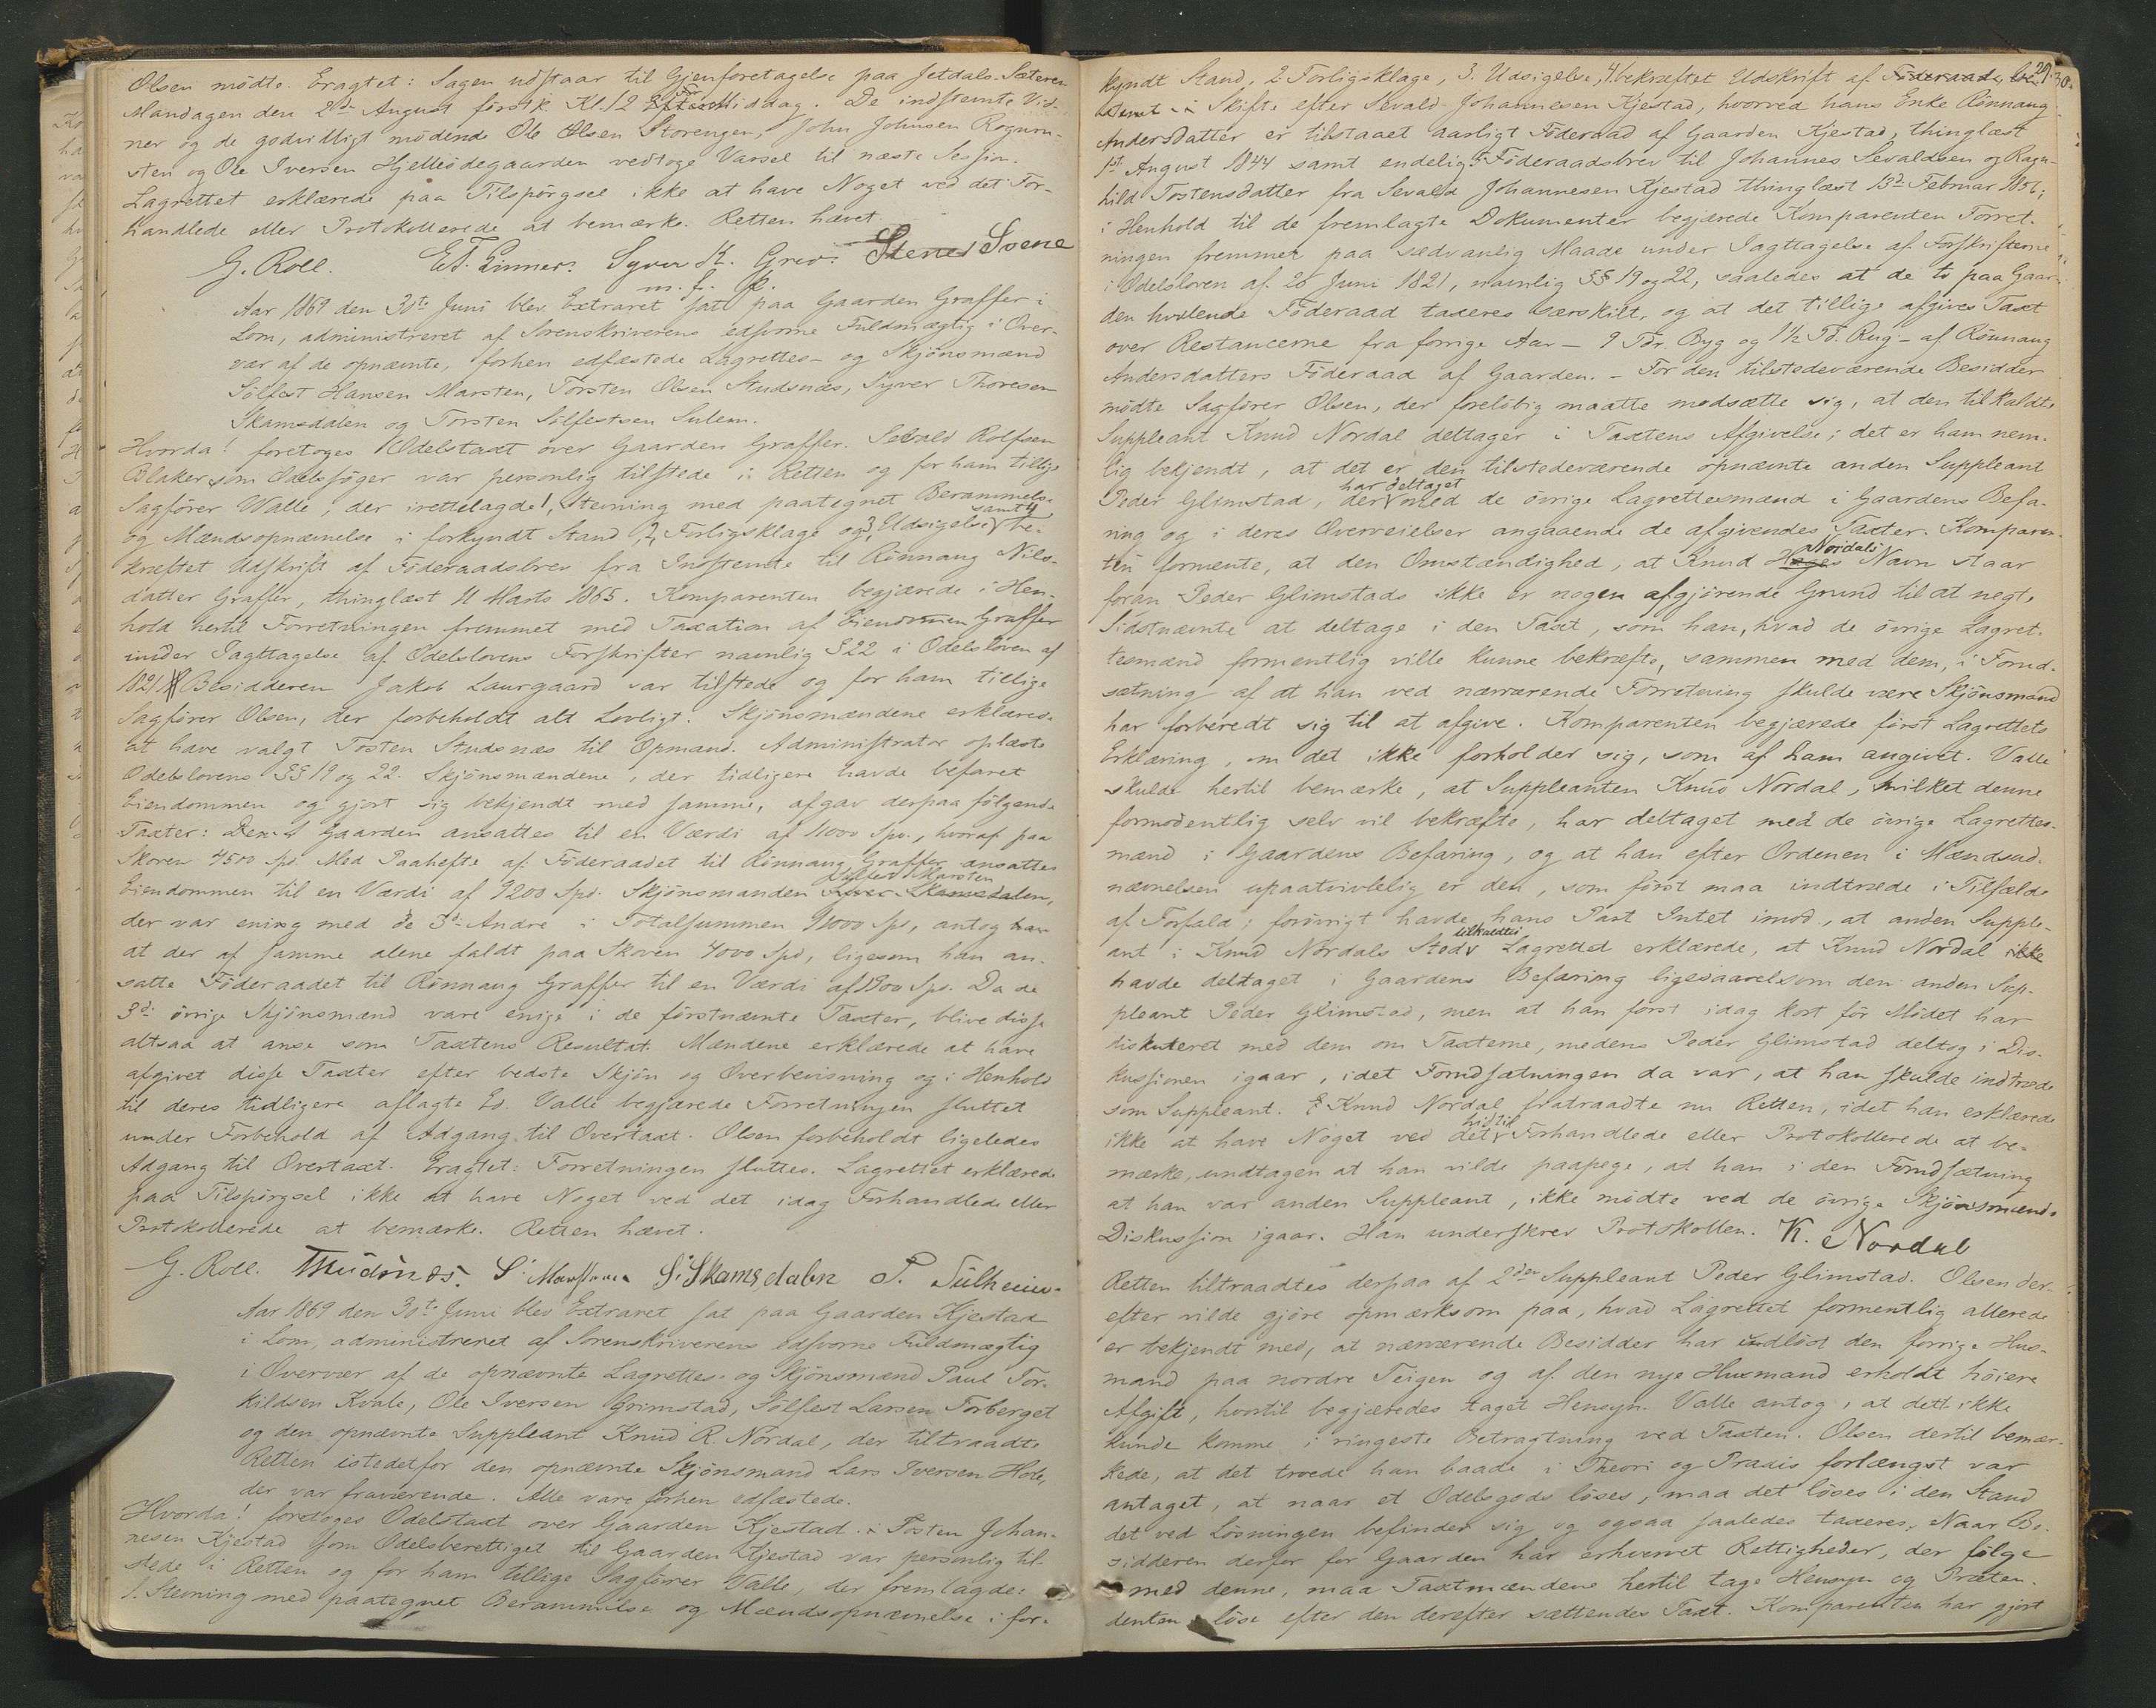 Olsen mödte. Eragtet: Sagen udstaar til Gjenforetagelse paa Jetdals-Sæteren
Mandagen den 2den August förstk. Kl. 12 Middag. De indstemte Vid-
ner og de godvilligt mödende Ole Olsen Storengen, John Johnsen Rognun-
sten og Ole Iversen Hjelleödegaarden vedtoge Varsel til næste Session.
Lagrettet erklærede paa Tilspörgsel ikke at have Noget ved det For-
handlede eller Protokollerede at bemærke. Retten hævet.
G. Roll. Syver Grev. Stener Svene
m. f. P.
Aar 1869 den 30te Juni blev Extraret sat paa Gaarden Graffer i
Lom, administreret af Sorenskriverens edsvorne Fuldmægtig i Over-
vær af de opnævnte, forhen edfæstede Lagrettes- og Skjönsmænd
Sölfest Hansen Marsten, Torsten Olsen Studsnæs, Syver Thoresen
Skamsdalen og Torsten Sölfestsen Sulem.
Hvorda! foretoges Odelstaxt over Gaarden Graffer. Sevald Rolfsen
Blaker som Odelssöger var personlig tilstede i Retten og for ham tillige
Sagförer Valle, der irettelagde 1, Stevning med paategnet Berammelse
og Mændsopnævnelse i forkyndt Stand, 2, Forligsklage og 3, Udsigelse samt 4 be-
kræftet Udskrift af Föderaadsbrev fra Indstevnte til Rönnaug Nils-
datter Graffer, thinglæst 11 Marts 1865. Komparenten begjærede i Hen-
hold hertil Forretningen fremmet med Taxation af Eiendommen Graffer
under Iagttagelse af Odelslovens Forskrifter navnlig § 22 i Odelsloven af
1821. Besidderen Jakob Laurgaard var tilstede og for ham tillige
Sagförer Olsen, der forbeholdt alt Lovligt. Skjönsmændene erklærede
at have valgt Tosten Studsnæs til Opmand. Administrator oplæste
Odelslovens §§ 19 og 22. Skjönsmændene, der tidligere havde befaret
Eiendommen og gjort sig bekjendt med samme, afgav derpaa fölgende
Taxter: Gaarden ansattes til en Værdi af 11000 Spd., hvoraf paa
Skoven 4500 Spd. Med Paahefte af Föderaadet til Rönnaug Graffer ansattes
Eiendommen til en Værdi af 9200 Spd. Skjönsmanden Sölfest Marsten Syver Skamsdalen,
der var enig med de 3de Andre i Totalsummen 11000 Spd, antog
at der af samme alene faldt paa Skoven 4000 Spd, ligesom han an-
satte Föderaadet til Rönnaug Graffer til en Værdi af 1900 Spd. Da de
3de övrige Skjönsmænd vare enige i de förstnævnte Taxter, blive disse
altsaa at anse som Taxtens Resultat. Mændene erklærede at have
afgivet disse Taxter efter bedste Skjön og Overbevisning og i Henhold
til deres tidligere aflagte Ed. Valle begjærede Forretningen sluttet
under Forbehold af Adgang til Overtaxt. Olsen forbeholdt ligeledes
Adgang til Overtaxt. Eragtet: Forretningen sluttes. Lagrettet erklærede
paa Tilspörgsel ikke at have Noget ved det idag Forhandlede eller
Protokollerede at bemærke. Retten hævet.
G. Roll. S Marsteen S: Skamsdalen T. Sulheim.
Aar 1869 den 30te Juni blev Extraret sat paa Gaarden Kjestad
i Lom, administreret af Sorenskriverens edsvorne Fuldmægtig
i Overvær af de opnævnte Lagrettes- og Skjönsmænd Paul Tor-
kildsen Kvale, Ole Iversen Grimstad, Sölfest Larsen Forberget
og den opnævnte Suppleant Knud R. Nordal, der tiltraadte
Retten istedetfor den opnævnte Skjönsmand Lars Iversen Hole,
der var fraværende. Alle vare forhen edfæstede.
Hvorda! foretoges Odelstaxt over Gaarden Kjestad. Tosten Johan-
nesen Kjestad som Odelsberettiget til Gaarden Kjestad var personlig til-
stede i Retten og for ham tillige Sagförer Valle, der fremlagde:
1. Stevning med paategnet Berammelse og Mændsopnævnelse i for-
29. 30.
kyndt Stand, 2. Forligsklage, 3. Udsigelse, 4, bekræftet Udskrift af Föderaads
i Skifte efter Sevald Johannesen Kjestad, hvorved hans Enke Rönnaug
Andersdatter er tilstaaet aarligt Föderaad af Gaarden Kjestad, thinglæst
1st August 1844 samt endelig 5 Föderaadsbrev til Johannes Sevaldsen og Ragn-
hild Tostensdatter fra Sevald Johannesen Kjestad thinglæst 13de Februar 1856;
i Henhold til de fremlagte Dokumenter begjærede Komparenten Forret-
ningen fremmet paa sædvanlig Maade under Iagttagelse af Forskrifterne
i Odelsloven af 26 Juni 1821, navnlig §§ 19 og 22, saaledes at de to paa Gaar-
den hvilende Föderaad taxeres særskilt, og at det tillige afgives Taxt
over Restancerne fra forrige Aar – 9 Tdr. Byg og 1½ Td. Rug – af Rönnaug
Andersdatters Föderaad af Gaarden. – For den tilstedeværende Besidder
mödte Sagförer Olsen, der forelöbig maatte modsætte sig, at den tilkaldte
Suppleant Knud Nordal deltager i Taxtens Afgivelse; det er ham nem-
lig bekjendt, at det er den tilstedeværende opnævnte anden Suppleant
Peder Glimstad, der har deltaget med de övrige Lagrettesmænd i Gaardens Befa-
ring og i deres Overveielser angaaende de afgivendes Taxter. Komparen-
ten formente, at den Omstændighed, at Knud Nordals Navn staar
foran Peder Glimstads ikke er nogen afgjörende Grund til at negte
Sidstnævnte at deltage i den Taxt, som han, hvad de övrige Lagret-
tesmænd formentlig ville kunne bekræfte, sammen med dem, i Forud-
sætning af at han ved nærværende Forretning skulde være Skjönsmand
har forberedt sig til at afgive. Komparenten begjærede först Lagrettets
Erklæring, om det ikke forholder sig, som af ham angivet. Valle
skulde hertil bemærke, at Suppleanten Knud Nordal, hvilket denne
formodentlig selv vil bekræfte, har deltaget med de övrige Lagrettes-
mænd i Gaardens Befaring, og at han efter Ordenen i Mændsud-
nævnelsen upaatvivlelig er den, som först maa indtræde i Tilfælde
af Forfald; forövrigt havde hans Part Intet imod, at anden Supple-
ant i Knud Nordals Sted tilkaldtes Lagrettet erklærede, at Knud Nordal ikke
havde deltaget i Gaardens Befaring ligesaavel som den anden Sup-
pleant Peder Glimstad, men at han först idag kort för Mödet har
diskuteret med dem om Taxterne, medens Peder Glimstad deltog i Dis-
kussionen igaar, idet Forudsætningen da var, at han skulde indtræde
som Suppleant. Knud Nordal fratraadte nu Retten, idet han erklærede
ikke at have Noget ved det hidtil Forhandlede eller Protokollerede at be-
mærke, undtagen at han vilde paapege, at han i den Forudsætning
at han var anden Suppleant, ikke mödte ved de övrige Skjönsmænds
Diskussion igaar. Han underskrev Protokollen. K. Nordal
Retten tiltraadtes derpaa af 2den Suppleant Peder Glimstad. Olsen der-
efter vilde gjöre opmærksom paa, hvad Lagrettet formentlig allerede
er bekjendt med, at nærværende Besidder har indlöst den forrige Hus-
mand paa nordre Teigen og af den nye Husmand erholdt höiere
Afgift, hvortil begjæredes taget Hensyn. Valle antog, at dette ikke
kunde komme i ringeste Betragtning ved Taxten. Olsen dertil bemær-
kede, at det troede han baade i Theori og Praxis forlængst var
antaget, at naar et Odelsgods löses, maa det löses i den Stand
det ved Lösningen befinder sig og ogsaa saaledes taxeres. Naar Be-
sidderen derfor for Gaarden har erhvervet Rettigheder, der fölge
med denne, maa Taxtmændene hertil tage Hensyn og Præten-
denten löse efter den derefter sættendes Taxt. Komparenten har gjort